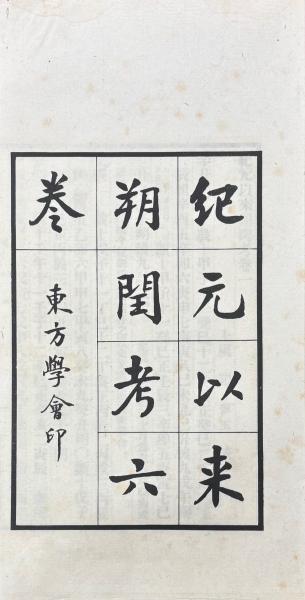 紀元以来
朔閏考六
卷
東方學會印